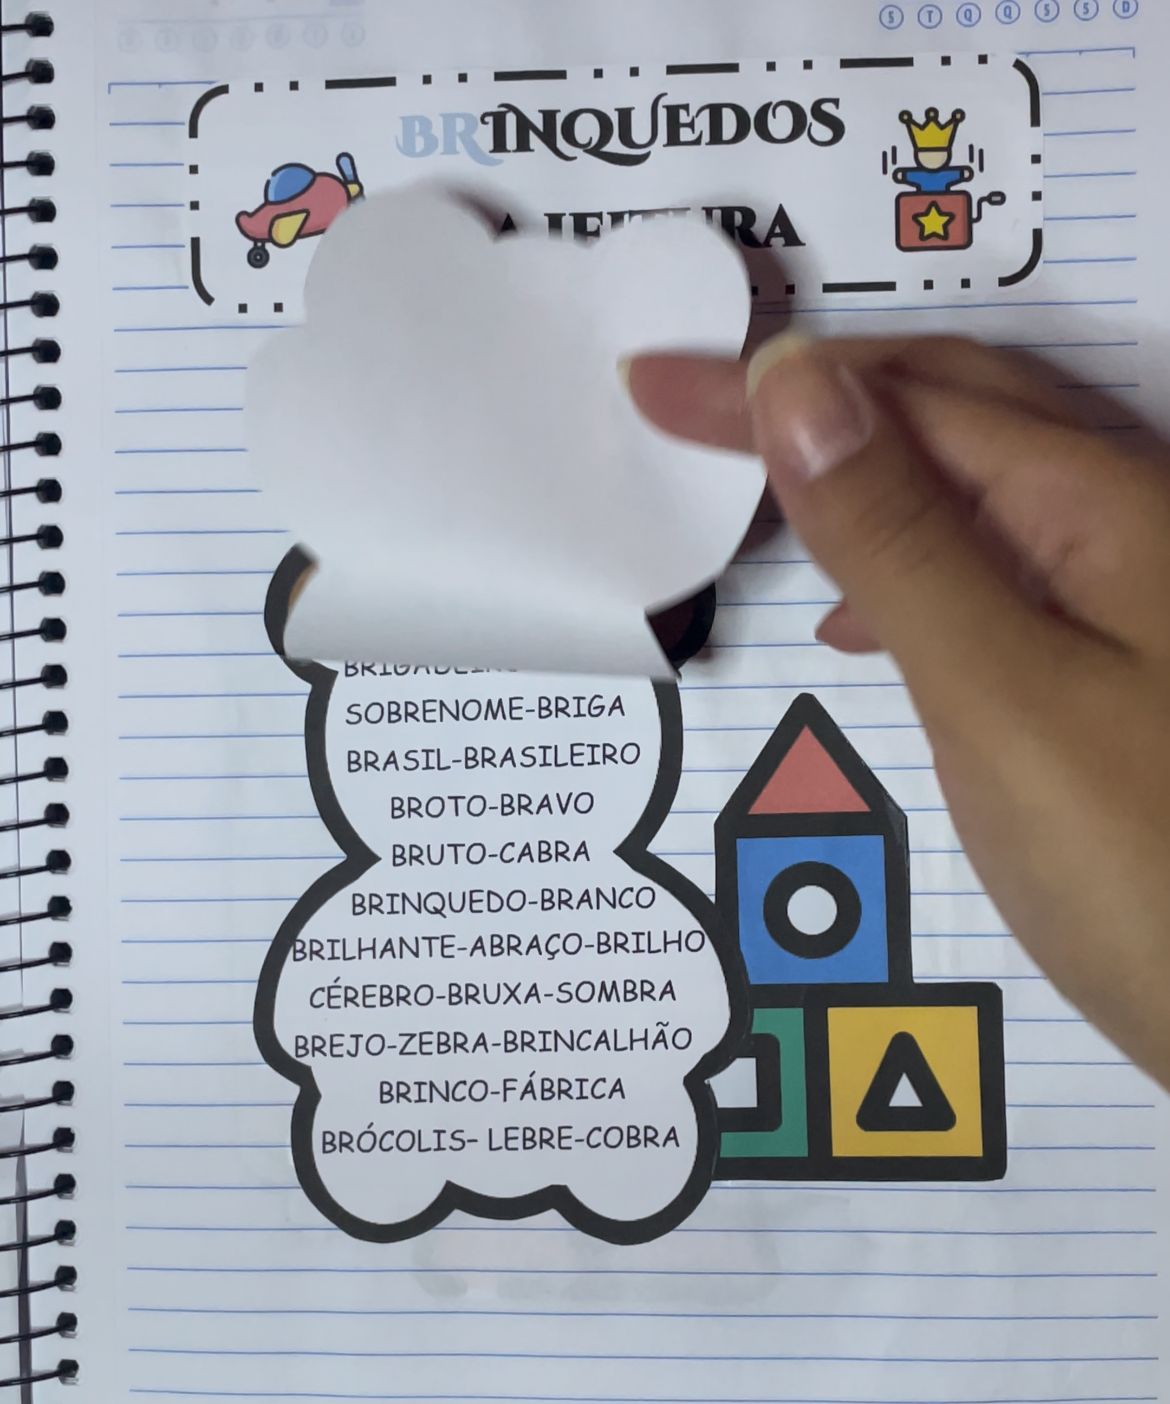 S T Q Q S S D
BRINQUEDOS
SOBRENOME-BRIGA
BRASIL-BRASILEIRO
BROTO-BRAVO
BRUTO-CABRA
BRINQUEDO-BRANCO
BRILHANTE-ABRAÇO-BRILHO
CÉREBRO-BRUXA-SOMBRA
BREJO-ZEBRA-BRINCALHÃO
BRINCO-FÁBRICA
BRÓCOLIS- LEBRE-COBRA